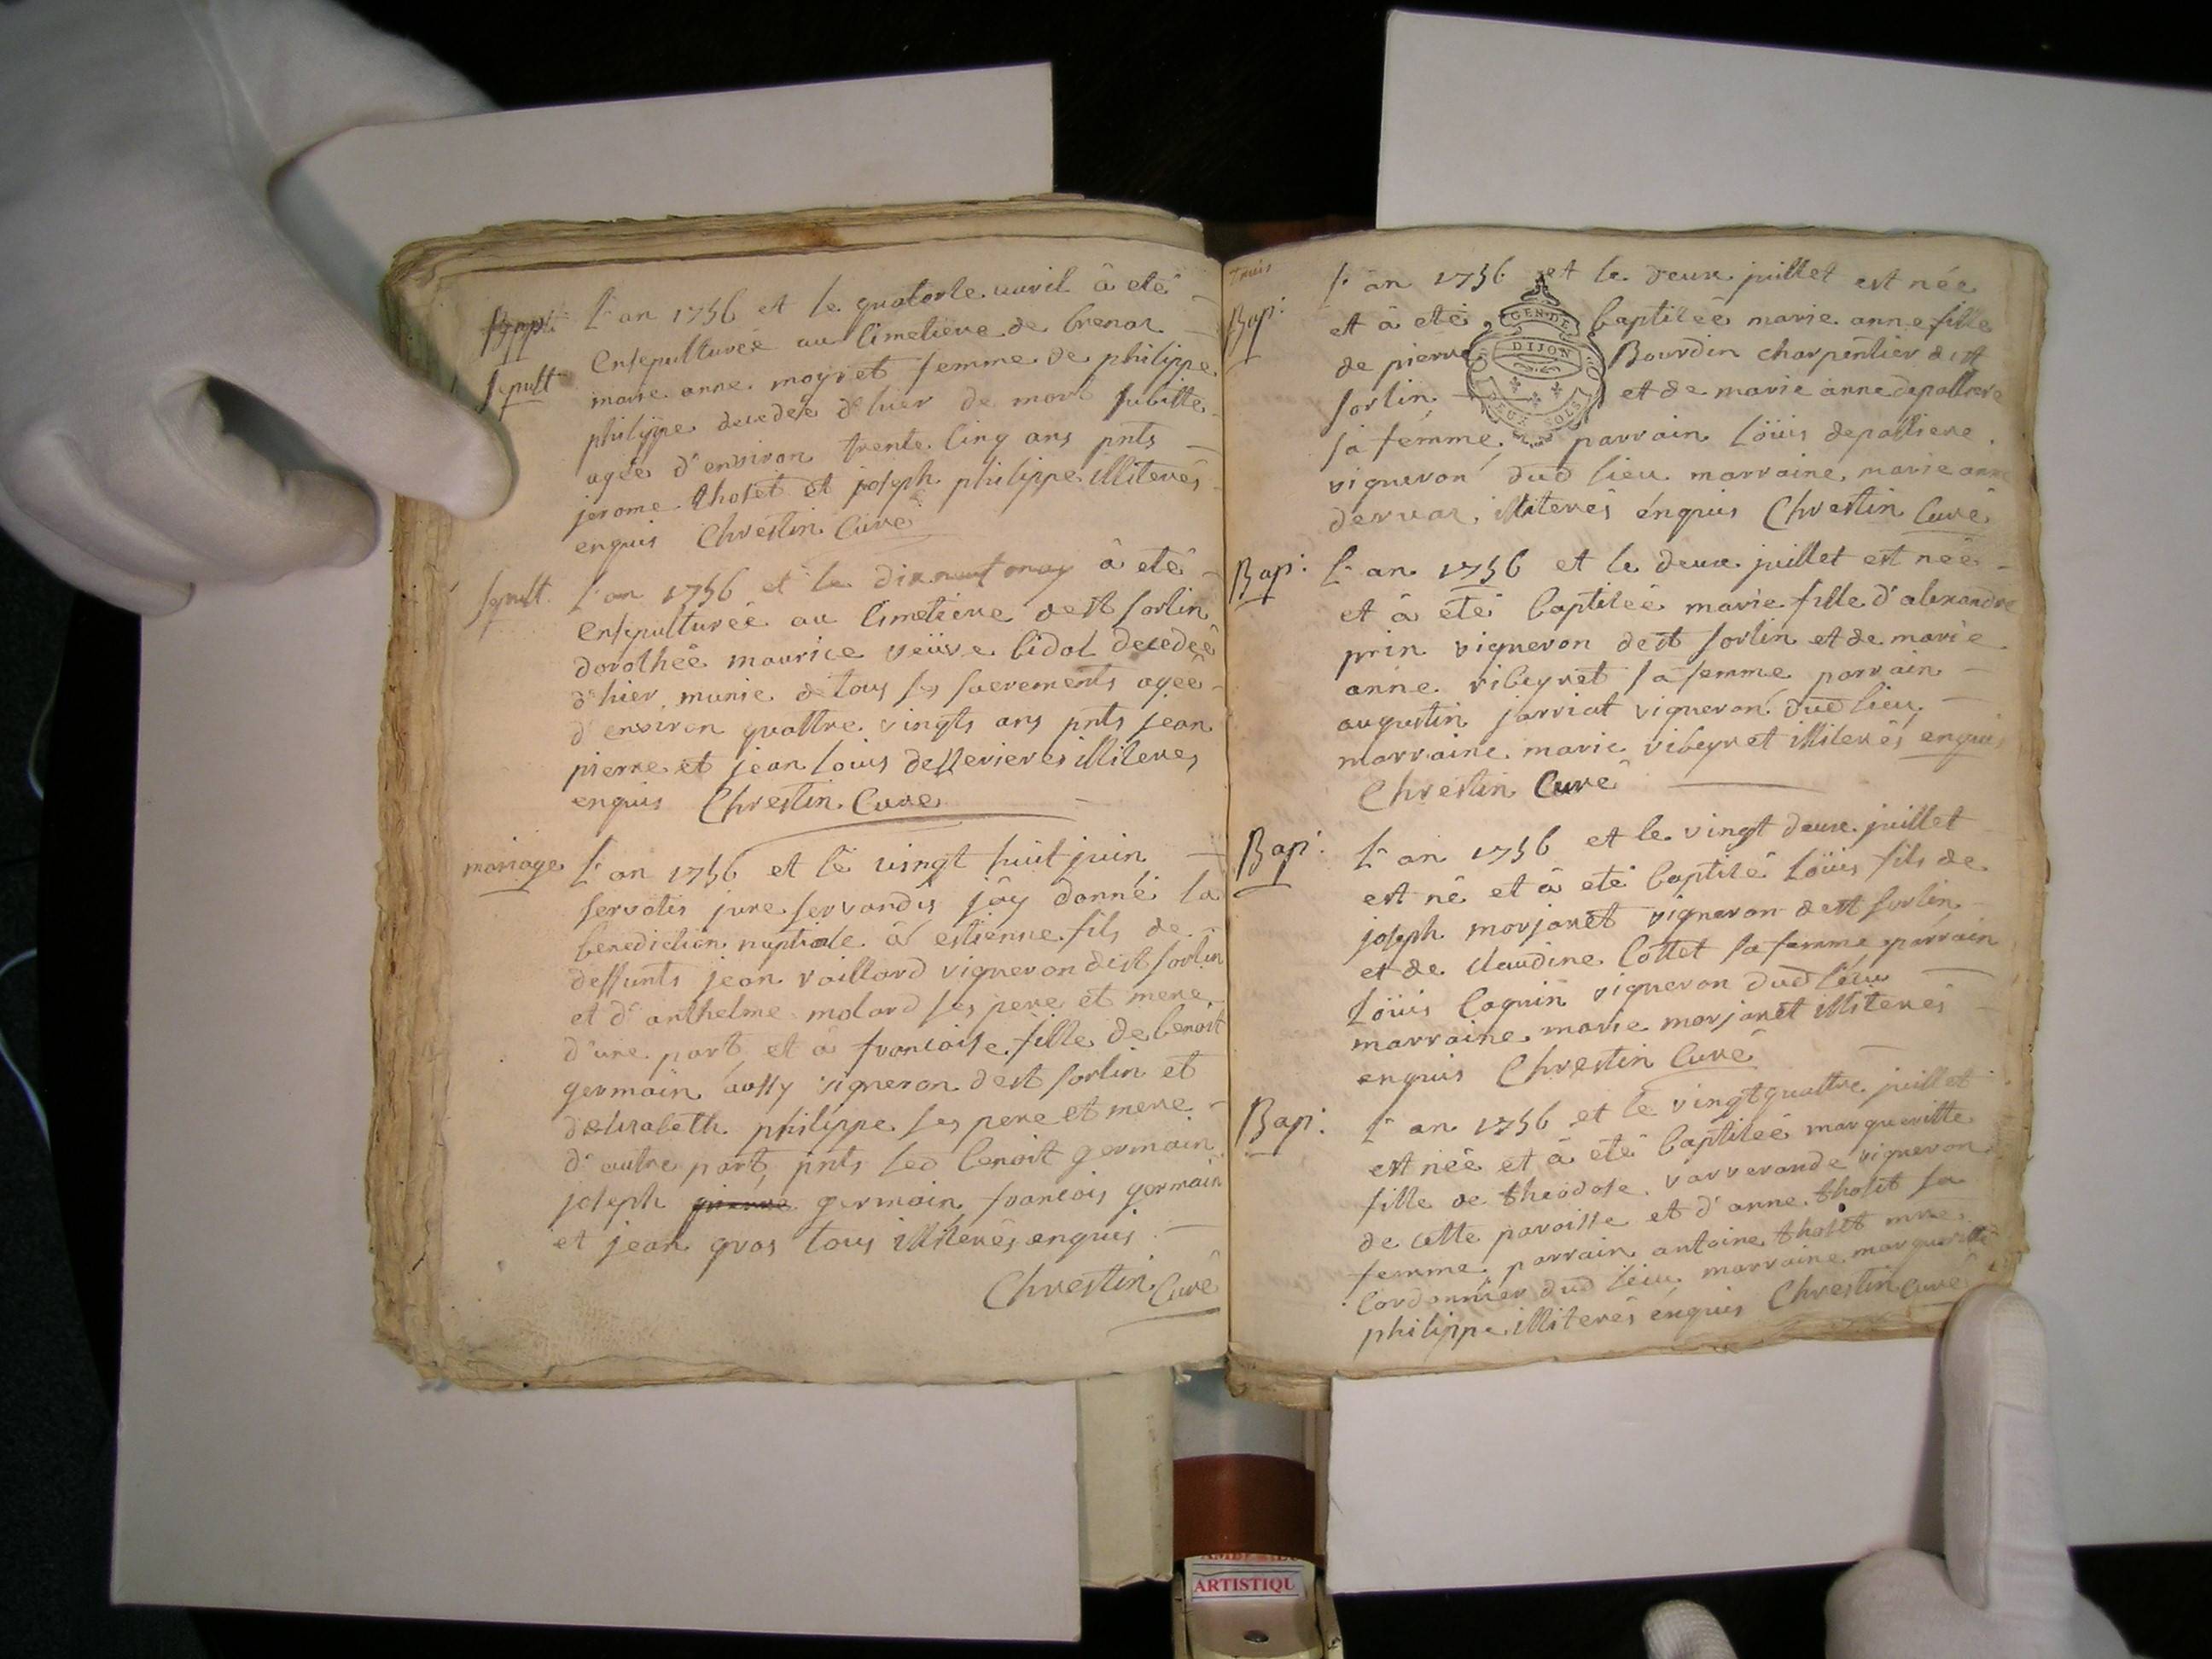 Sepult
L'an 1756 et le quatorle avril â eté
Ensepulturée au Cimetiere de brenaz
marie anne moyret femme de philippe
philippe decedée d'hier de mort subitte
agée d'environ trente Cinq ans pnts
jerome tholet et joseph philippe illiterés
enquis Chrestin Curé
Sepult.
L'an 1756 et le dixneuf may â eté
Ensepulturée au Cimetiere de st sorlin
dorothée maurice veüve bidal decedeé
d'hier munie de tous ses sacrements ageé
d'environ quattre vingts ans pnts jean
pierre et jean loüis desserieres illiteres
enquis Chrestin Curé
mariage
L'an 1756 et le vingt huit juin
servatis jure servandis j'ay donné la
benediction nuptiale â estienne fils de
deffunts jean vaillard vigneron de st sorlin
et d'anthelme molard ses pere et mere
d'une part et â francoise fille de benoit
germain aussy vigneron de st sorlin et
d'elisabeth philippe ses pere et mere
d'autre part, pnts led benoit germain
joseph germain francois germain
et jean gros tous illiterés enquis
Chrestin Curé
Bap:
L'an 1756 et le deux juillet est née
et â eté baptiseé marie anne fille
de pierre Bourdin charpentier de st
sorlin et de marie anne depalliere
sa femme, parrain loüis depalliere
vigneron dud lieu marraine marie anne
dervaz illiterés enquis Chrestin Curé
GEN DE
DIJON
DEUX SOLS
Bap:
L'an 1756 et le deux juillet est neé
et â eté baptiseé marie fille d'alexandre
prin vigneron de st sorlin et de marie
anne ribeyret sa femme parrain
augustin jarriat vigneron dud lieu
marraine marie ribeyret illiterés enquis
Chrestin Curé
Bap:
L'an 1756 et le vingt deux juillet
est né et â eté baptisé loüis fils de
joseph morjaret vigneron de st sorlin
et de claudine Cottet sa femme parrain
loüis Coquin vigneron dud lieu
marraine marie marjaret illiterés
enquis Chrestin Curé
Bap:
L'an 1756 et le vingtquattre juillet
est neé et â eté baptiseé margueritte
fille de theodose varverande vigneron
de cette paroisse et d'anne tholet sa
femme parrain antoine tholet mre
Cordonnier dud lieu marraine margueritte
philippe illiterés enquis Chrestin Curé
ARTISTIQU